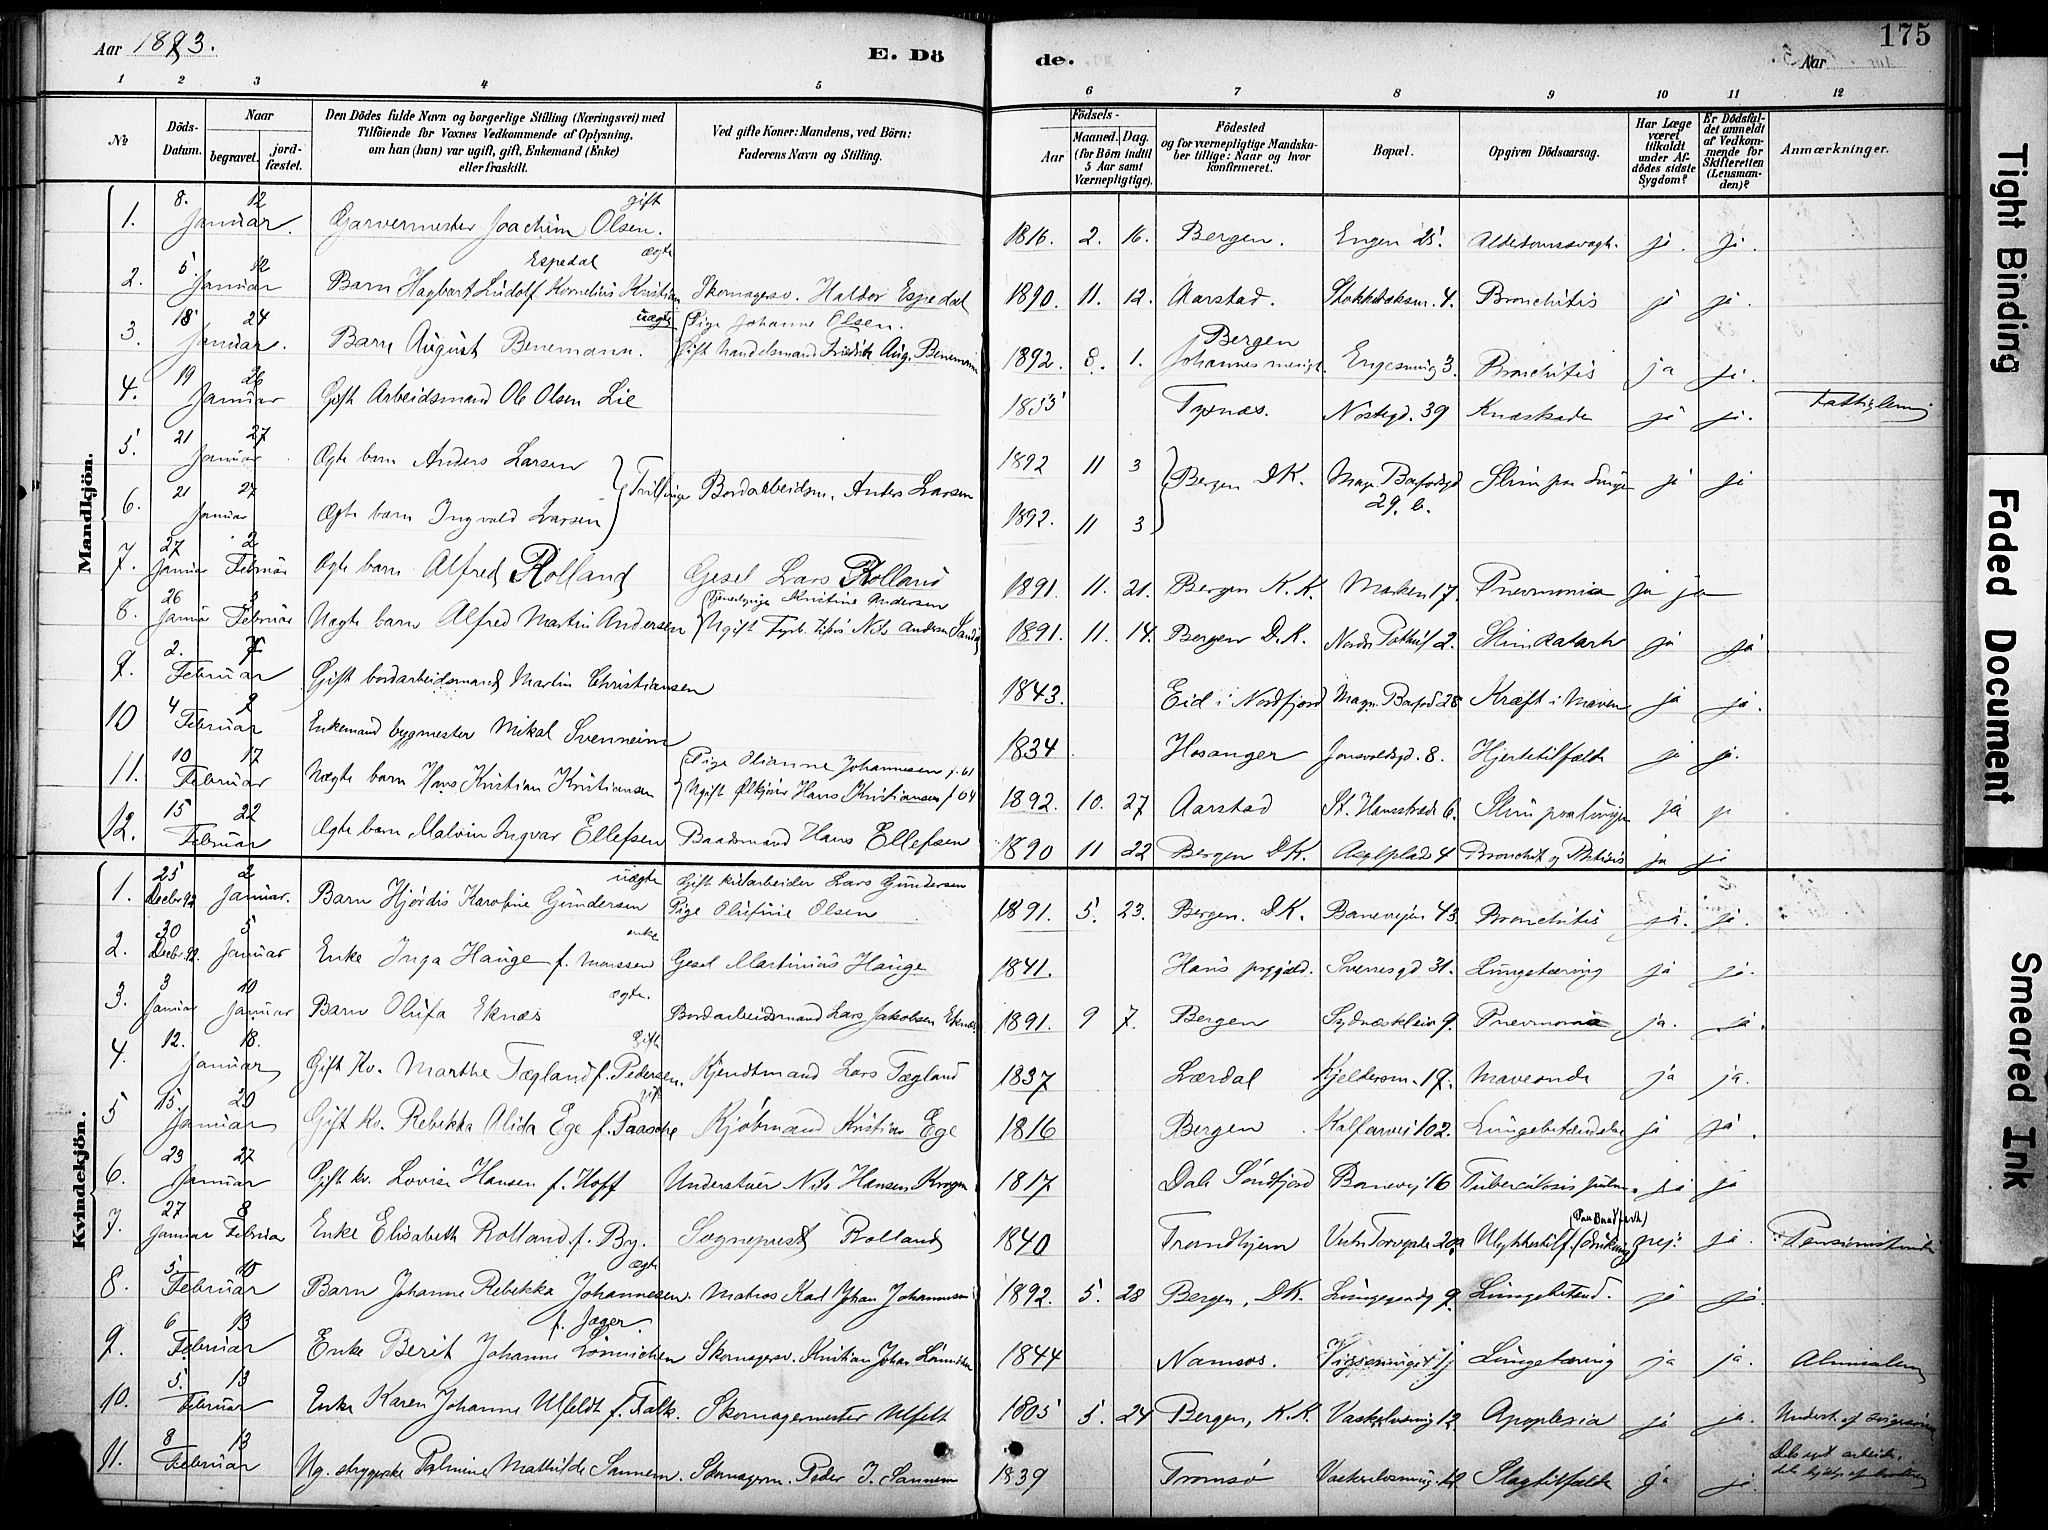 Aar 1893.
E. Dö
de.
Aar
175
1 2 3 4 5 6 7 8 9 10 11 12
No
Döds-Datum.
Naar
begravet.
jord-fæstet.
Den Dödes fulde Navn og borgerlige Stilling (Næringsvei) med
Tilföiende for Voxnes Vedkommende af Oplysning,
om han (hun) var ugift, gift, Enkemand (Enke)
eller fraskilt.
Ved gifte Koner: Mandens, ved Börn:
Faderens Navn og Stilling.
Födsels-
Aar
Maaned. Dag.
(for Börn indtil
5 Aar samt
Værnepligtige).
Födested
og for værnepligtige Mandska-
ber tillige: Naar og hvor
konfirmeret.
Bopæl.
Opgiven Dödsaarsag.
Har Læge
været
tilkaldt
under Af-
dödes sidste
Sygdom?
Er Dödsfal-
det anmeldt
af Vedkom-
mende for
Skifteretten
(Lensman-
den)?
Anmærkninger.
Mandkjön.
1. 8. Januar 12 Garvermester Joachim Olsen. gift 1816. 2. 16. Bergen. Engen 25. ja. ja.
2. 5. Januar 12 Barn Hagbart Ludolf Kornelius Kristian Espedal ægte Skomagersv. Haldor Espedal 1890. 11. 12. Aarstad. 4. Bronchitis ja ja.
3. 18 Januar. 24 Barn August Benemann. uægte Pige Johanne Olsen. Gift Handelsmand Fredrik Aug. Benemann 1892. 8. 1. Bergen Johannes menigh. Engesmug 3. Bronchitis ja ja.
4. 19 Januar 26 Gift Arbeidsmand Ole Olsen Lie Tysnæs. Nøstegd. 39 Knæskade ja ja. Fattiglem
5. 21 Januar 27 Ægte barn Anders Larsen 1892 11 3
Tvillinge Bordarbeidsm. Anders Larsen Bergen DK. Magn. Barfodsgd 29. b. Slim paa Lunge ja ja
6. 21 Januar 27 Ægte barn Ingvald Larsen 1892. 11 3
7. 27 Januar 2 Februar Ægte barn Alfred Rolland Gesel Lars Rolland 1891. 11. 21. Bergen K. K. Marken 17. Pnevmonia ja ja
8. 26 Januar 3 Februar Uægte barn Alfred Martin Andersen Tjenestepige Kristine Andersen Ugift Nils Andersen 1891. 11. 14. Bergen D.K. 2. Slimkatarh ja ja
9. 2. Februar 7 Gift bordarbeidsmand Martin Christiansen 1843. Eid i Nordfjord Magn. Barfod 28 Kræft i Maven ja ja.
10 4 Februar 9 Enkemand bygmester Mikal Svenheim 1834 Hosanger Jonsvoldsgd. 8. Hjertetilfælde ja ja.
11. 10 Februar 17 Uægte barn Hans Kristian Kristiansen Pige Olianne Johannesen f. 61 Ugift Hans Kristiansen f. 64 1892. 10. 27 Aarstad St. Hansstræde 6. Slim paa lungen ja ja
12. 15 Februar 22 Ægte barn Malvin Ingvar Ellefsen Baadsmand Hans Ellefsen 1890 11 22 Bergen DK. Asylplads 4 Bronchit og Phtisis ja ja
Kvindekjön.
1. 25 Decbr 92 2 Januar. Barn Hjørdis Karoline Gundersen uægte Gift Lars Gundersen Pige Olufine Olsen 1891. 5. 23. Bergen. DK. Baneveien 43. Bronchitis ja. ja.
2. 30 Decbr. 92. 5 Januar Enke Inga Hauge f. Monssen enke Gesel Martinius Hauge 1841. Haus prgjæld. Sverresgd 31. Lungetæring ja ja.
3. 3 Januar 10 Januar Barn Olufa Eknæs ægte. Bordarbeidsmand Lars Jakobsen Eknæs 1891. 9 7. Bergen Sydnæskleiv 9. Pnevmonia ja. ja.
4. 12. Januar 18. Gift Kv. Marthe Tægland f. Pedersen. Gift Kjendtmand Lars Tægland 1837 Lærdal Kjeldersm. 17. Maveonde ja ja.
5 15. Januar 20 Gift Kv. Rebekka Alida Ege f. Paasche gift Kjøbmand Kristian Ege 1816 Bergen Kalfarvei 102. Lungebetændelse ja ja.
6. 23 Januar 27 Gift kv. Lovise Hansen f. Hoff Understuer Nils Hansen Krogen 1817 Dale Søndfjord Banevej 16 Tuberculosis pulm. ja ja
7. 27 Januar 8 Februar Enke Elisabeth Rolland f. By. Sogneprest Rolland 1840 Trondhjem Vestre Torvgade 20a Ulykkestilf. (drukning) nej. ja. Pensionistinde
8. 5. Februar 10 Barn Johanne Rebekka Johannesen. ægte Matros Karl Johan Johannesen 1892. 5. 28 Bergen, DK. Lungegaardsg 9. Lungebetænd. ja ja.
9. 6 Februar 13 Enke Berit Johanne Lönnichen f. Jæger. Skomagersv. Kristian Johan Lönnichen 1844 Namsos. Lungetæring ja ja. Almislem
10. 5. Februar 13 Enke Karen Johanne Ulfeldt f. Falk. Skomagermester Ulfelt 1805 5. 24 Bergen, K.K. 12 Apoplexia ja ja. Underst. af svigersøn
11. 8 Februar 13 Ug. strygerske Palmine Mathilde Sannem. Skomagerm. Peder J. Sannem 1839 Tromsø 12 Slagtilfælde ja ja. Dels eget arbeide, dels hjælp af
Tight Binding
Faded Document
Smeared Ink